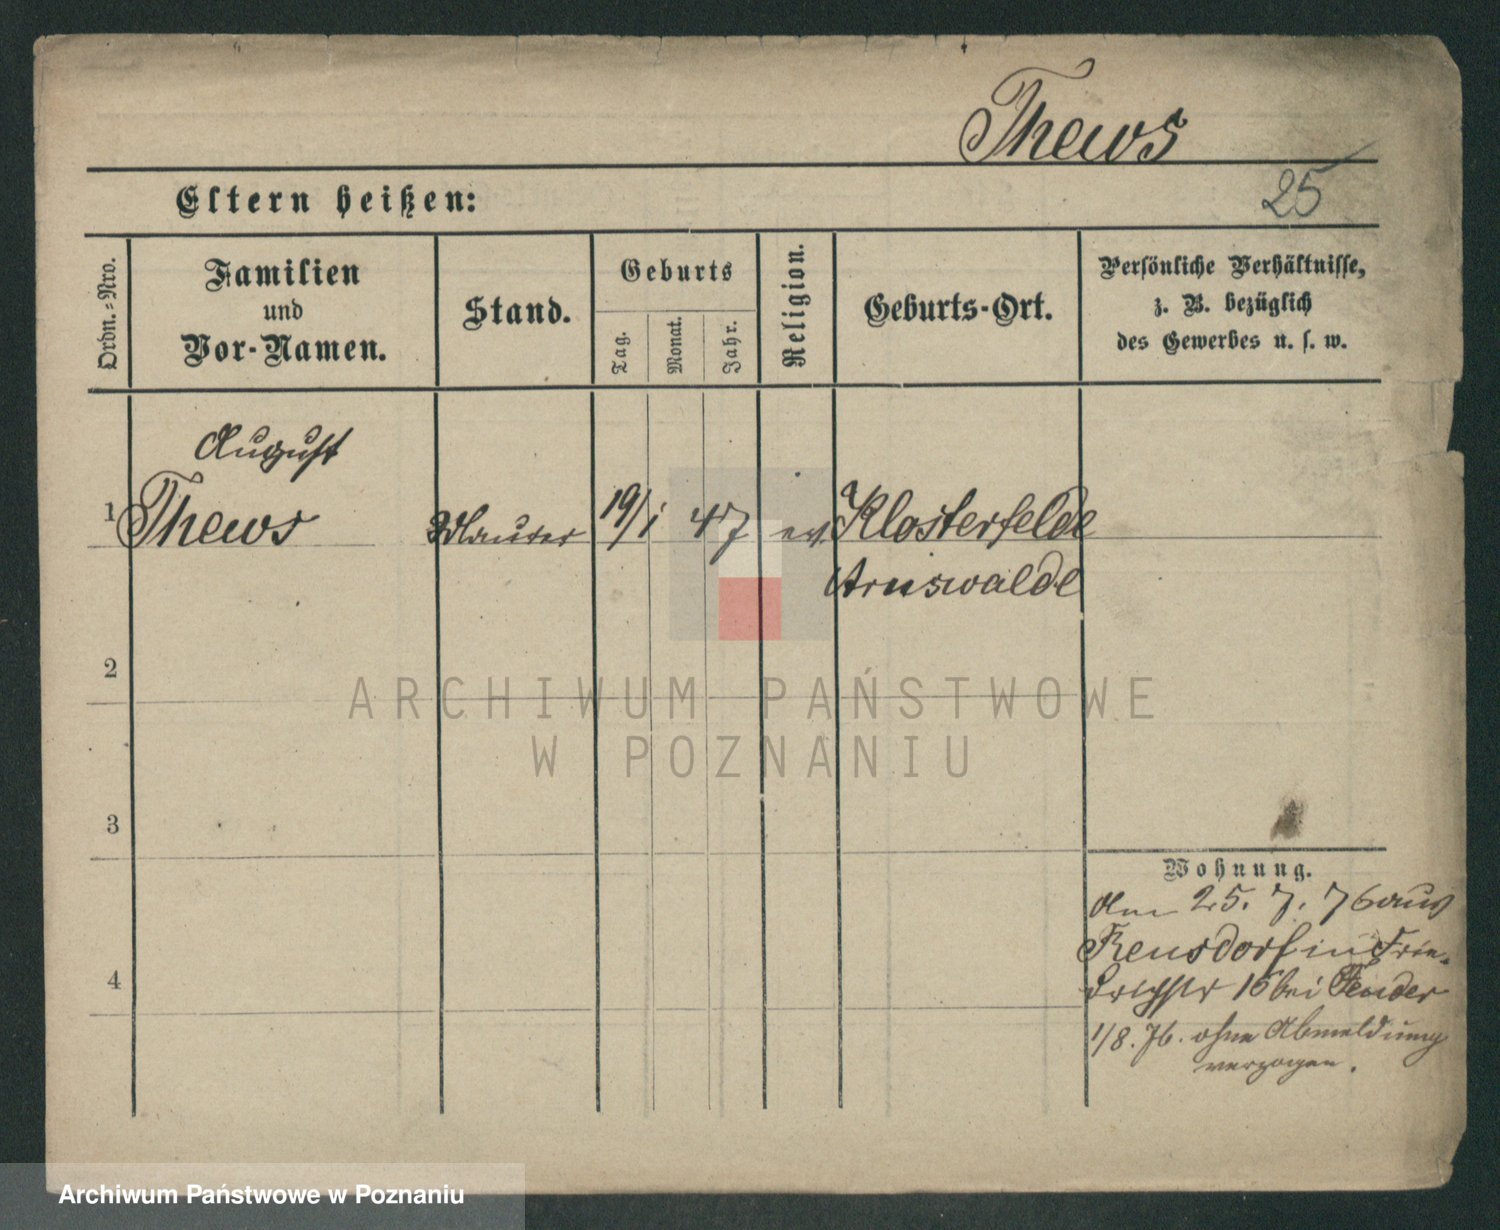 Thews
25
Eltern heißen:
Ordn.-Nro.
Familien
und
Vor-Namen.
Stand.
Geburts
Tag.
Monat.
Jahr.
Religion.
Geburts-Ort.
Persönliche Verhältnisse,
z. B. bezüglich
des Gewerbes u. s. w.
August
1 Thews Maurer 19/1 47 ev. Klosterfelde
Arnswalde
2
3
4
Wohnung.
Am 25. 7. 76 aus
Rensdorf in Frie-
drichstr 16 bei Fender
1/8. 76. ohne Abmeldung
verzogen.
ARCHIWUM PAŃSTWOWE
W POZNANIU
Archiwum Państwowe w Poznaniu